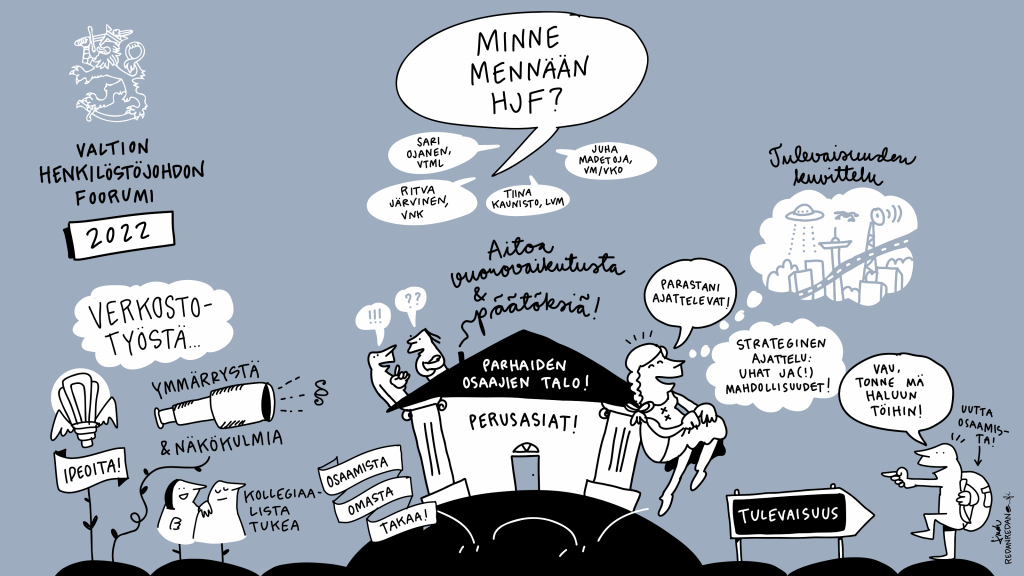 VALTION
HENKILÖSTÖJOHDON
FOORUMI
2022
MINNE
MENNÄÄN
HJF?
SARI
OJANEN,
VTML
JUHA
MADETOJA,
VM/VKO
RITVA
JÄRVINEN,
VNK
TIINA
KAUNISTO, LVM
Tulevaisuuden
kuvittelu
Aitoa
vuorovaikutusta
&
päätöksiä!
!!!
??
PARASTANI
AJATTELEVAT!
STRATEGINEN
AJATTELU:
UHAT JA(!)
MAHDOLLISUUDET!
VAU,
TONNE MÄ
HALUUN
TÖIHIN!
UUTTA
OSAAMIS-
TA!
VERKOSTO-
TYÖSTÄ...
YMMÄRRYSTÄ
§
& NÄKÖKULMIA
IDEOITA!
KOLLEGIAA-
LISTA
TUKEA
PARHAIDEN
OSAAJIEN TALO!
PERUSASIAT!
OSAAMISTA
OMASTA
TAKAA!
TULEVAISUUS
REDANREDAN